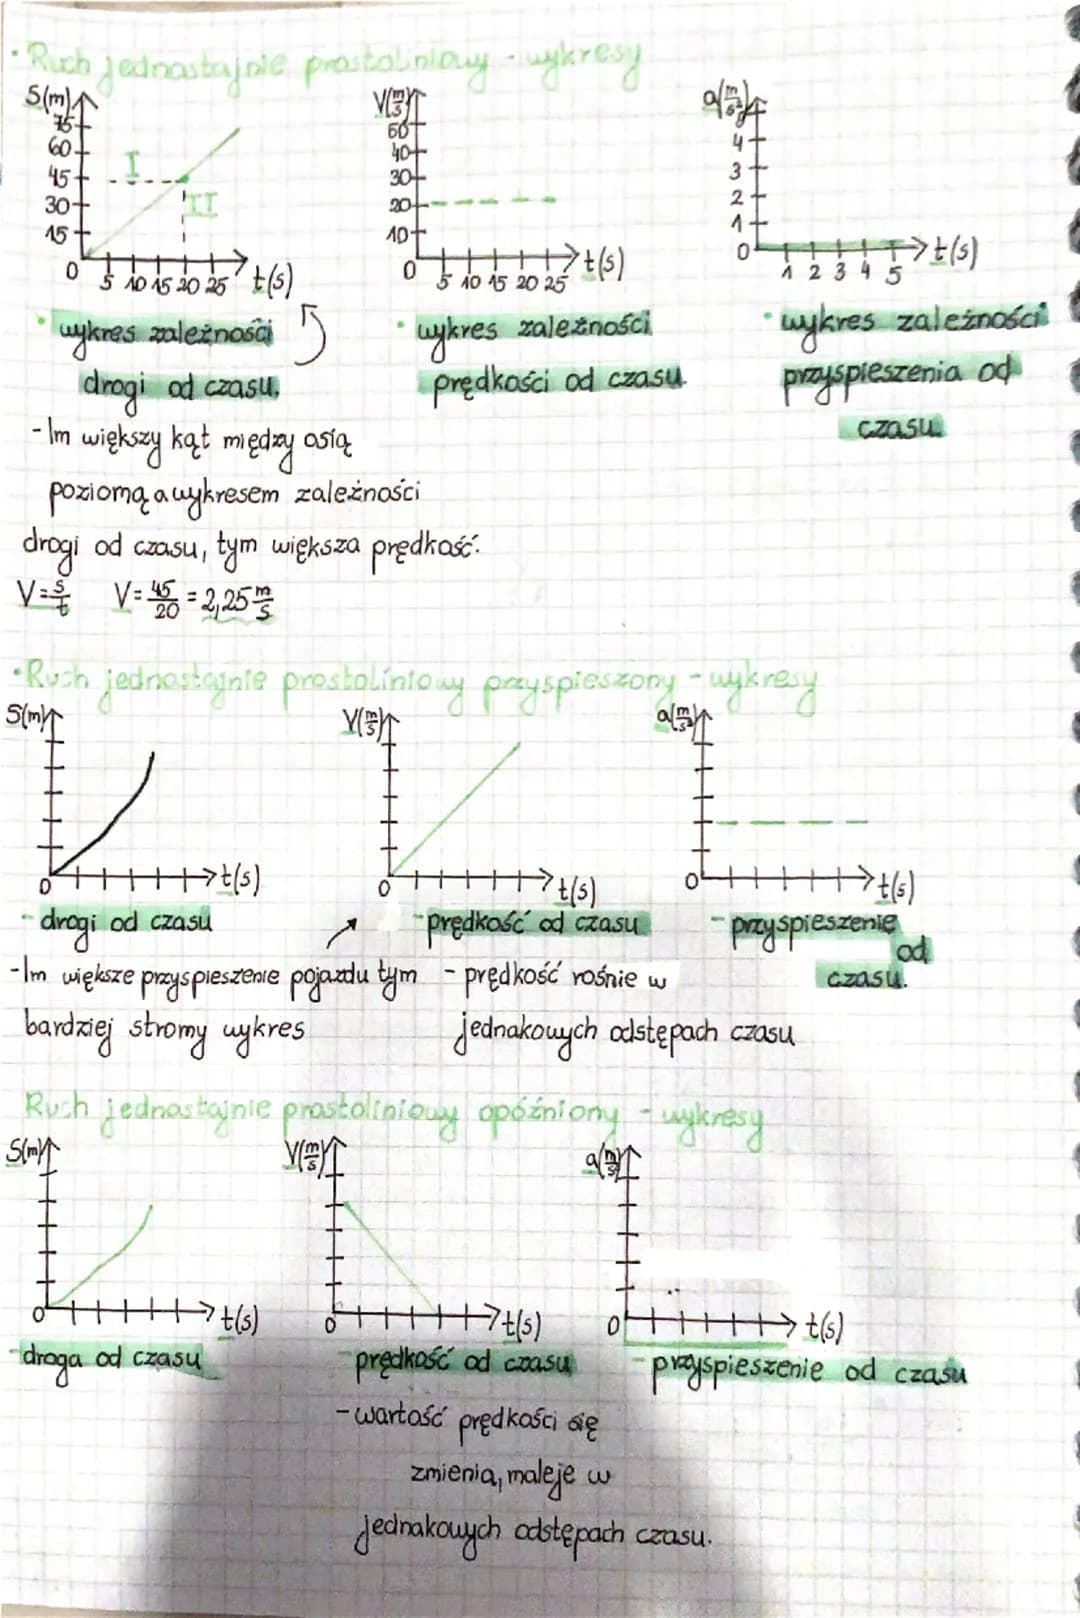 • Ruch jednostajnie prostoliniowy - wykresy
S(m) V(m/s) a(m/s²)
75 60 45 30 15 0
5 10 15 20 25 t(s)
I II
60 40 30 20 10 0
5 10 15 20 25 t(s)
4 3 2 1 0
1 2 3 4 5 t(s)
• wykres zależności
drogi od czasu.
• wykres zależności
prędkości od czasu.
• wykres zależności
przyspieszenia od
czasu.
- Im większy kąt między osią
poziomą a wykresem zależności
drogi od czasu, tym większa prędkość.
V=s/t V=45/20=2,25 m/s
• Ruch jednostajnie prostoliniowy przyspieszony - wykresy
S(m) V(m/s) a(m/s²)
0 t(s) 0 t(s) 0 t(s)
- drogi od czasu
- prędkość od czasu
- przyspieszenie
od
czasu.
- Im większe przyspieszenie pojazdu tym
bardziej stromy wykres
- prędkość rośnie w
jednakowych odstępach czasu
Ruch jednostajnie prostoliniowy opóźniony - wykresy
S(m) V(m/s) a(m/s)
0 t(s) 0 t(s) 0 t(s)
- droga od czasu
prędkość od czasu
- przyspieszenie od czasu
- wartość prędkości się
zmienia, maleje w
jednakowych odstępach czasu.